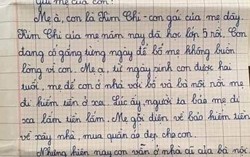 gái mẹ của con!
Mẹ à, con là Kim Chi - con gái của mẹ đây
Kim Chi của mẹ năm nay đã học lớp 5 rồi. Con
đang cố gắng từng ngày để bố mẹ không buồn
lòng vì con. Mẹ ạ, từ ngày sinh con được hai
tuổi, mẹ để con ở nhà với bố và bà nội rồi mẹ
đi biền biệt ở xa. Lúc ấy, người ta bảo mẹ đi
xa làm tiền lắm. Mẹ gửi điện về bảo kiếm tiền
về xây nhà, mua quần áo đẹp cho con.
Nhưng hiện nay con vẫn ở nhà cũ của bà nội